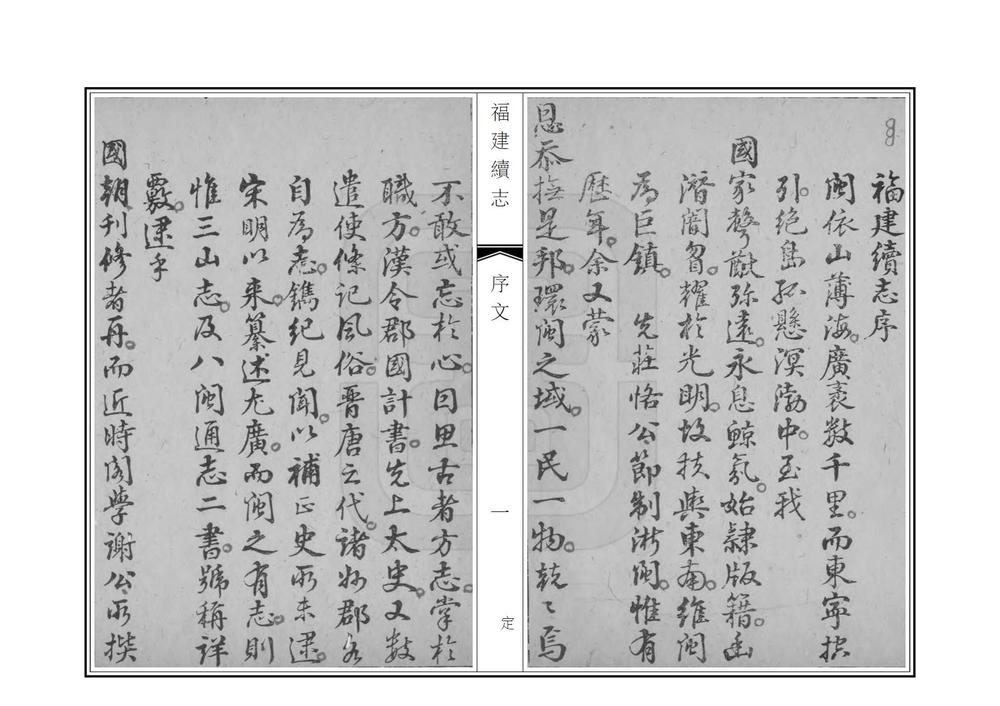 福建續志序
閩依山薄海。廣袤数千里。而東寧控
引。絕島孤懸溟渤中。至我
國家聲猷弥遠。永息鯨氛。始隸版籍。幽
潛闇曶。耀於光明。故扶輿東南。維閩
為巨鎮。　先莊恪公節制浙閩。惟有
歷年。余又蒙
恩忝撫是邦。環閩之域。一民一物。兢〻焉
福建續志
序文
一
定
不敢或忘於心。曰思古者方志。掌於
職方。漢令郡國計書。先上太史。又数
遣使條記風俗。晋唐之代。諸州郡各
自為志。鐫紀見聞。以補正史所未逮。
宋明以来。纂述尤廣。而閩之有志。則
惟三山志。及八閩通志二書。號稱詳
覈。逮乎
國朝刊修者再。而近時閣學謝公。所撰